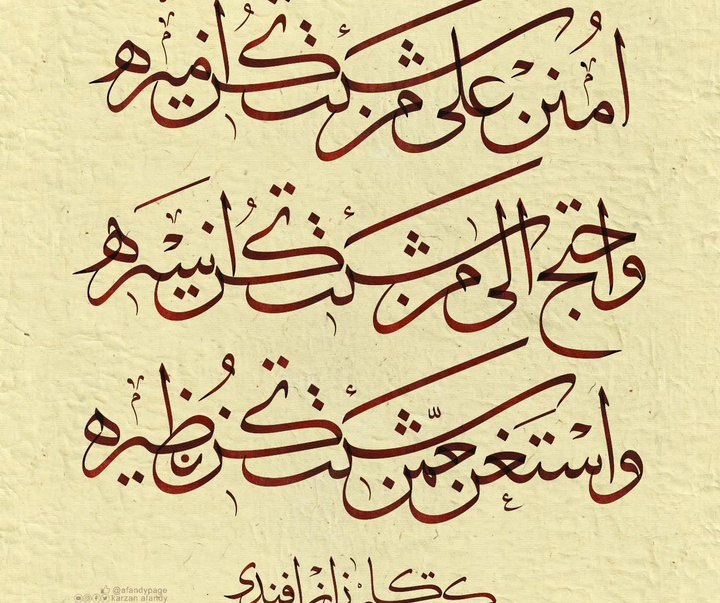 اُمنن على من شئت تكن اميره
واحتج الى من شئت تكن اسيره
واستغن عمّن شئت تكن نظيره
افندي
@afandypage
karzan afandy